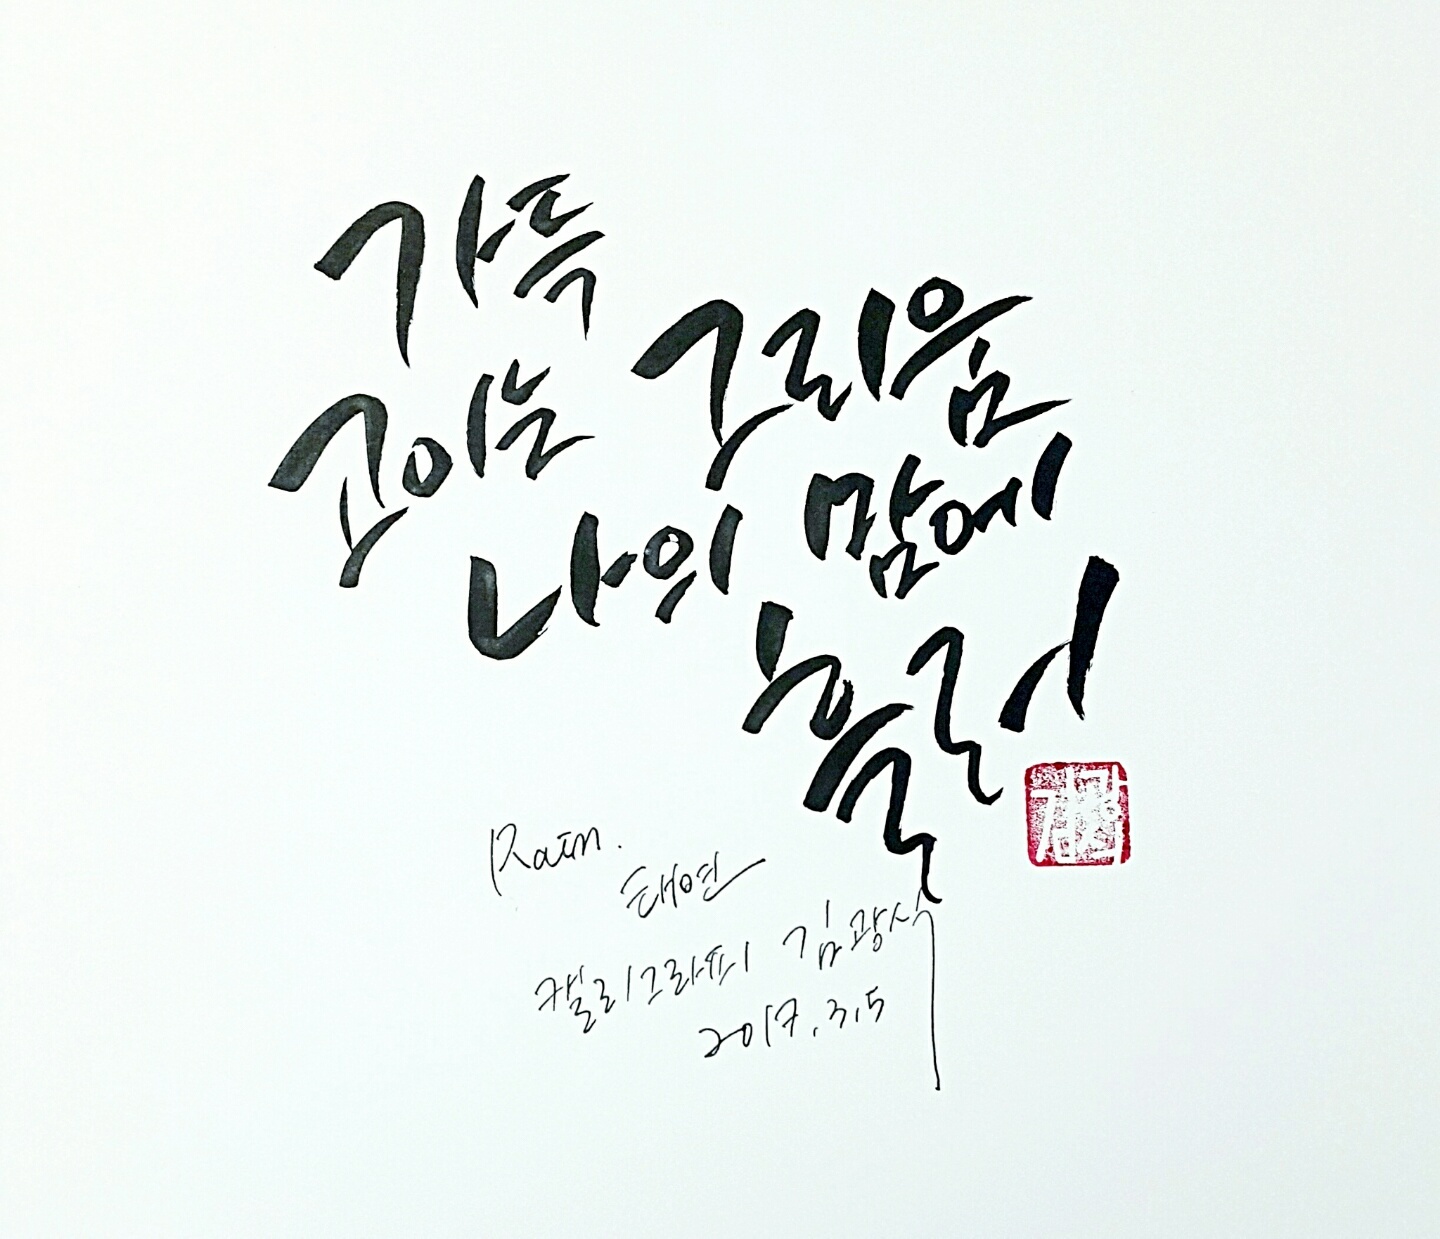 가득
고이는 그리움
나의 맘에
흘러
Rain.
태연
캘리그라피
2017.3.5